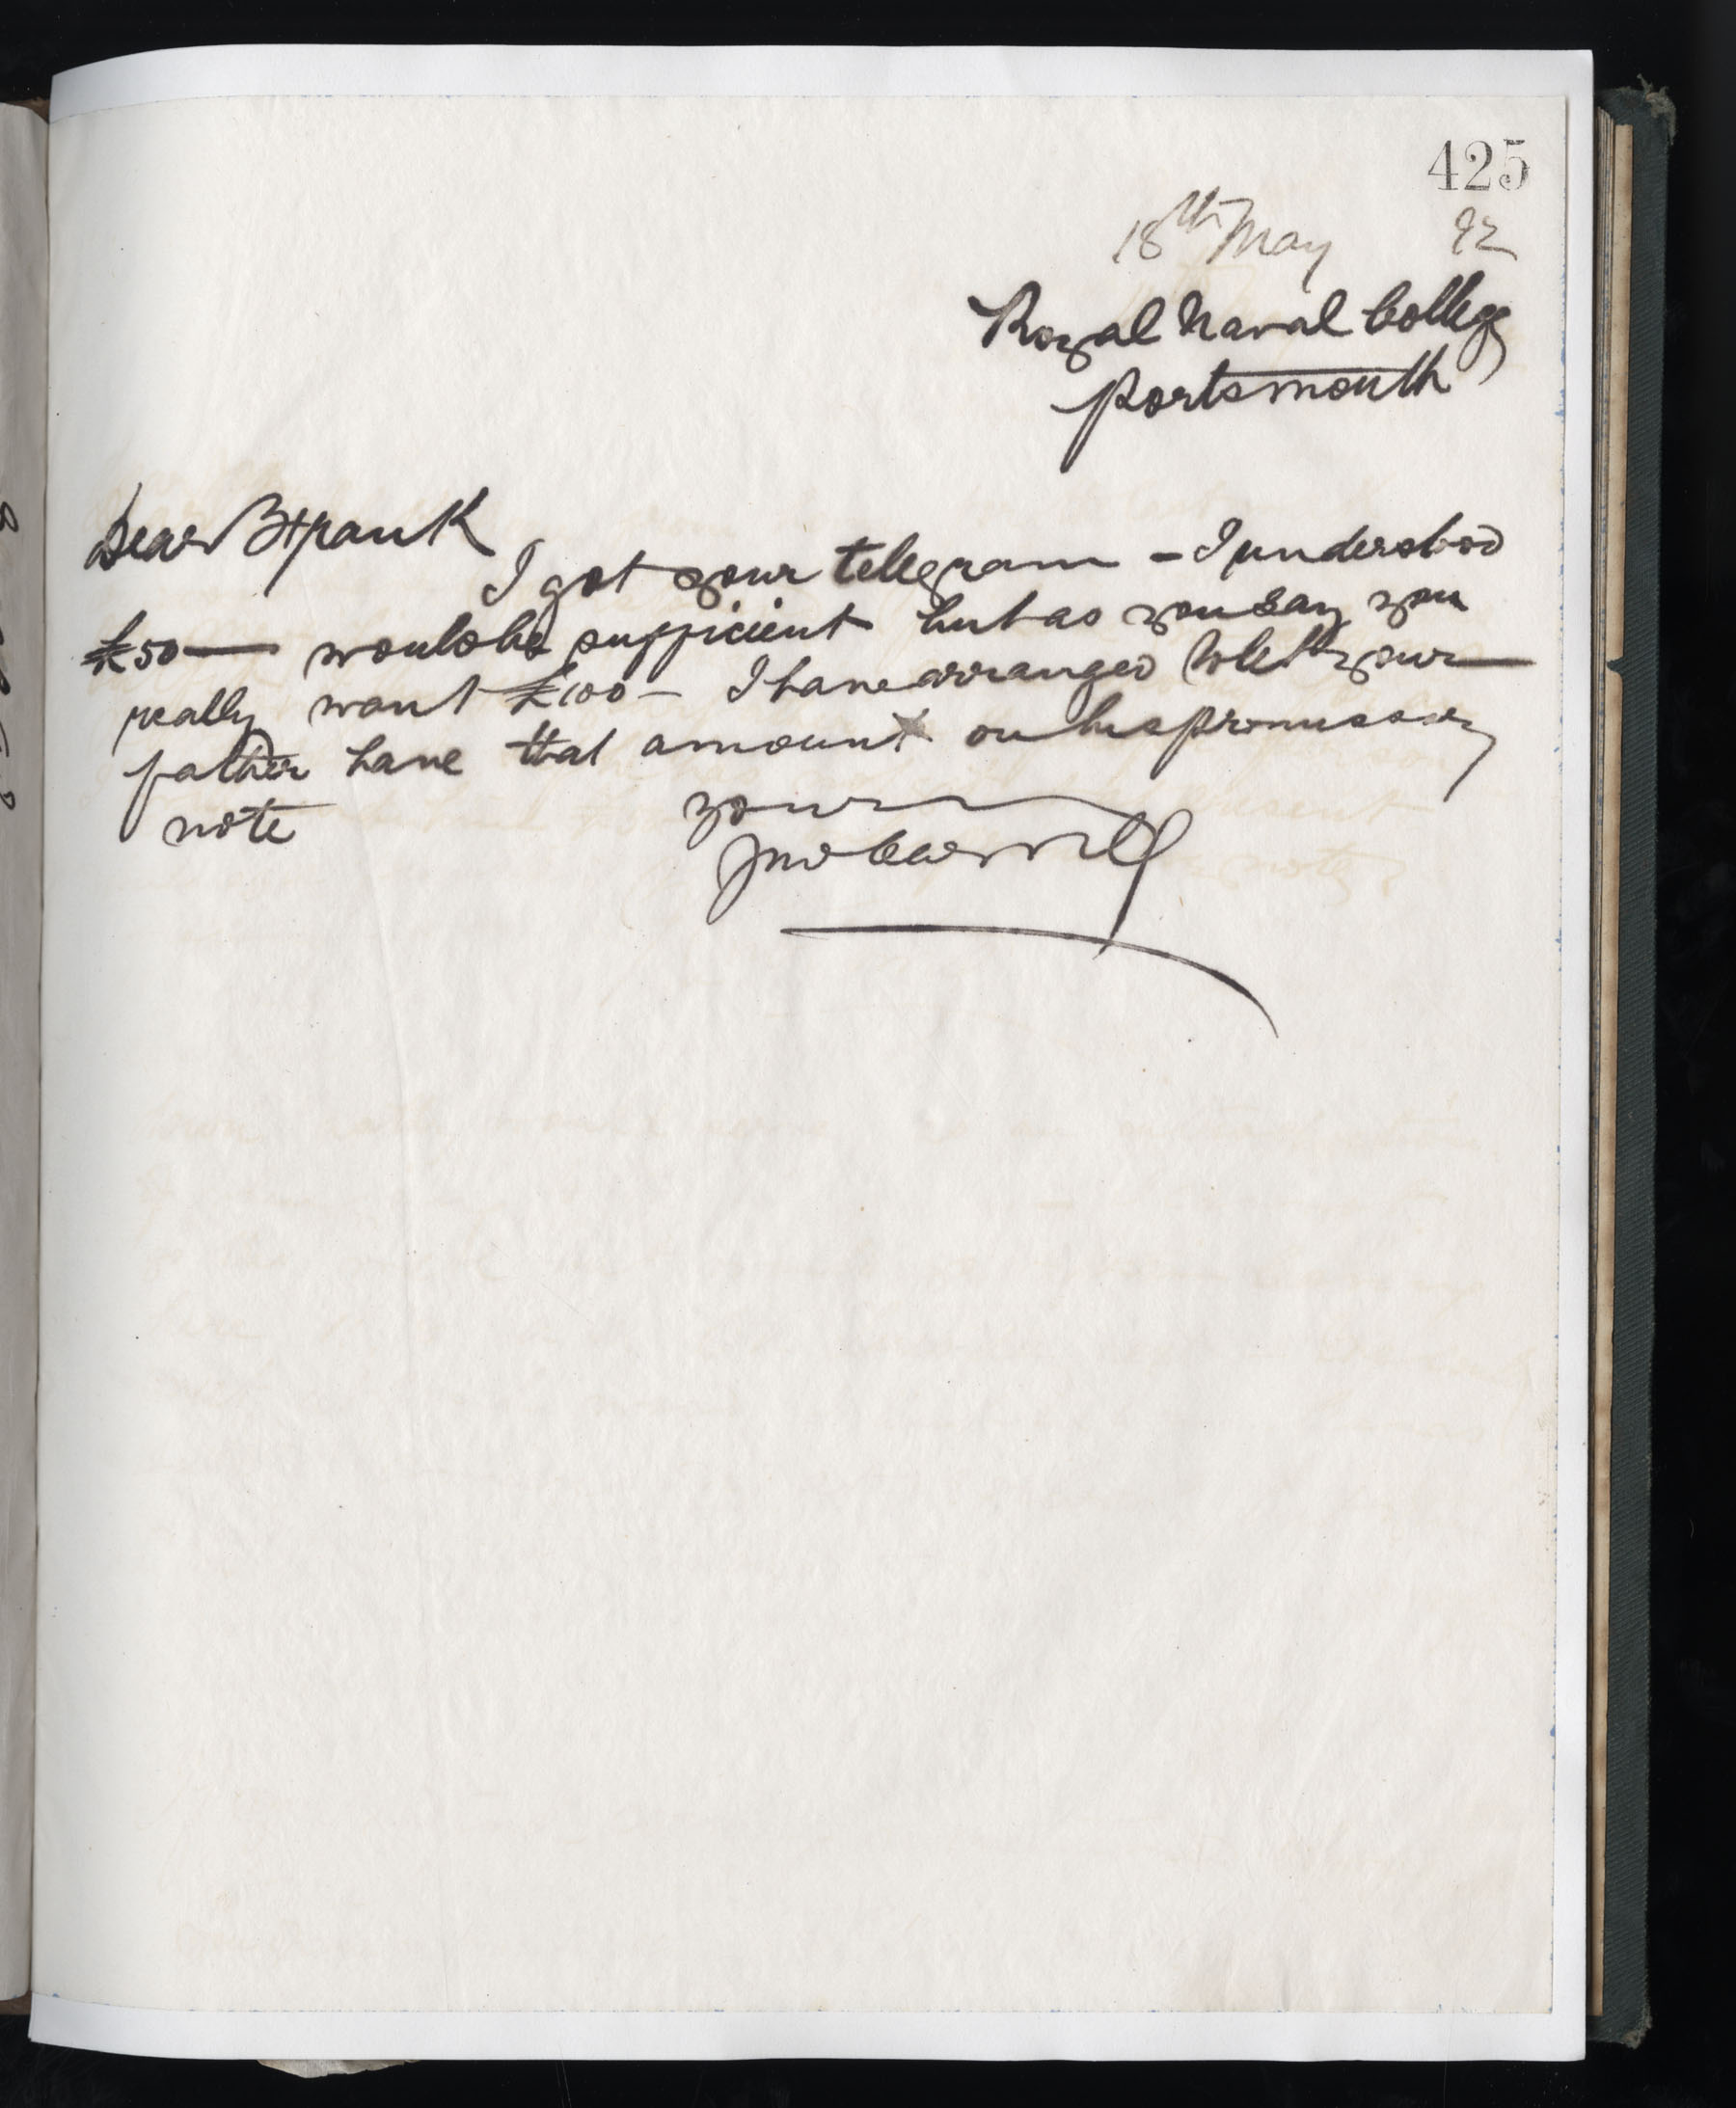 425
18th May 92
Royal Naval College
Portsmouth
Dear Frank
I got your telegram – I understood
£50 — would be sufficient but as you say you
really want £100 – I have arranged to let your
father have that amount on his promissory
note
yours
Jno